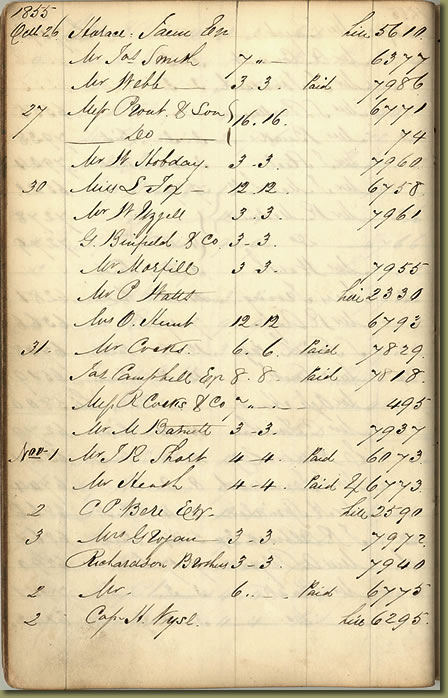 1855
Octr 26 Horace Esqr hire 5610
Mr Jas Smith 7 " — 6377
Mr Webb 3 - 3. Paid 7986
27 Messrs Prout & Son 16.16. 6771
Do 74
Mr W Hobday. 3 - 3. 7960
30 Miss L Fox 12.12. 6758
Mr W Uzzell 3.3. 7961
G. Binfield & Co. 3 - 3.
Mr Morfill 3 3. 7955
Mr P Watts hire 2330
Mrs O. Hunt 12.12 6793
31. Mr Cocks. 6. 6. Paid 7829.
Jas Campbell Esqr 8. 8 Paid 7818.
Messrs R Cocks & Co 7 " — 495
Mr M Barnett 3 - 3. 7937
Novr 1 Mr J R Short 4 - 4. Paid 6073.
Mr Heath 4 - 4. Paid 6773.
2 C P Bere Esqr. hire 2590
3 Mrs Grogan 3 - 3 7972.
Richardson Brothers 3 - 3 7940
2 Mr 6.. — Paid 6775
2 Capt H. hire 6295.